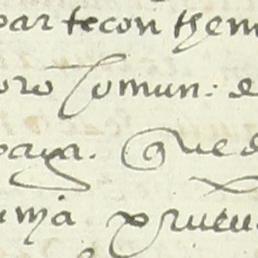 partecon them
oro Comun: e
paga. que d
uma prueu